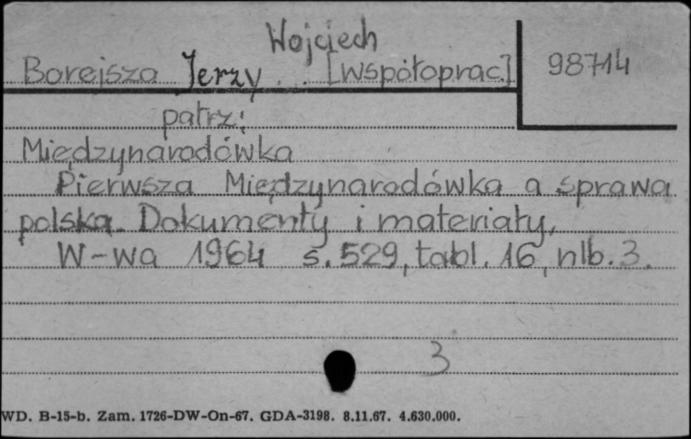 Wojciech
Borejsza Jerzy . . [współoprac.] 98714
patrz:
Międzynarodówka
Pierwsza Międzynarodówka a sprawa
polska. Dokumenty i materiały,
W-wa 1964 s. 529, tabl. 16, nlb. 3.
3
WD. B-15-b. Zam. 1726-DW-On-67. GDA-3198. 8.11.67. 4.630.000.